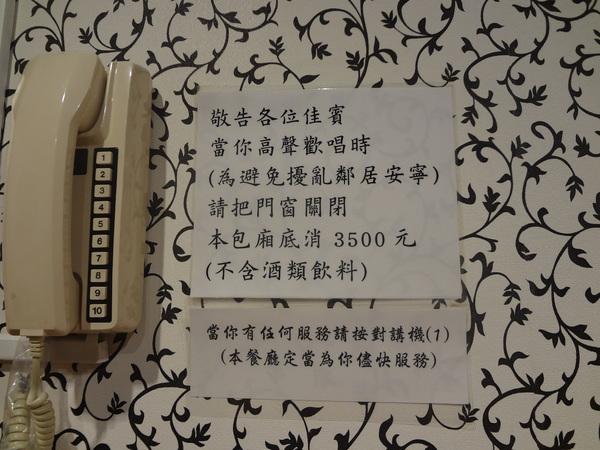 1
2
3
4
5
6
7
8
9
10
敬告各位佳賓
當你高聲歡唱時
(為避免擾亂鄰居安寧)
請把門窗關閉
本包廂底消 3500 元
(不含酒類飲料)
當你有任何服務請按對講機(1)
(本餐廳定當為你儘快服務)